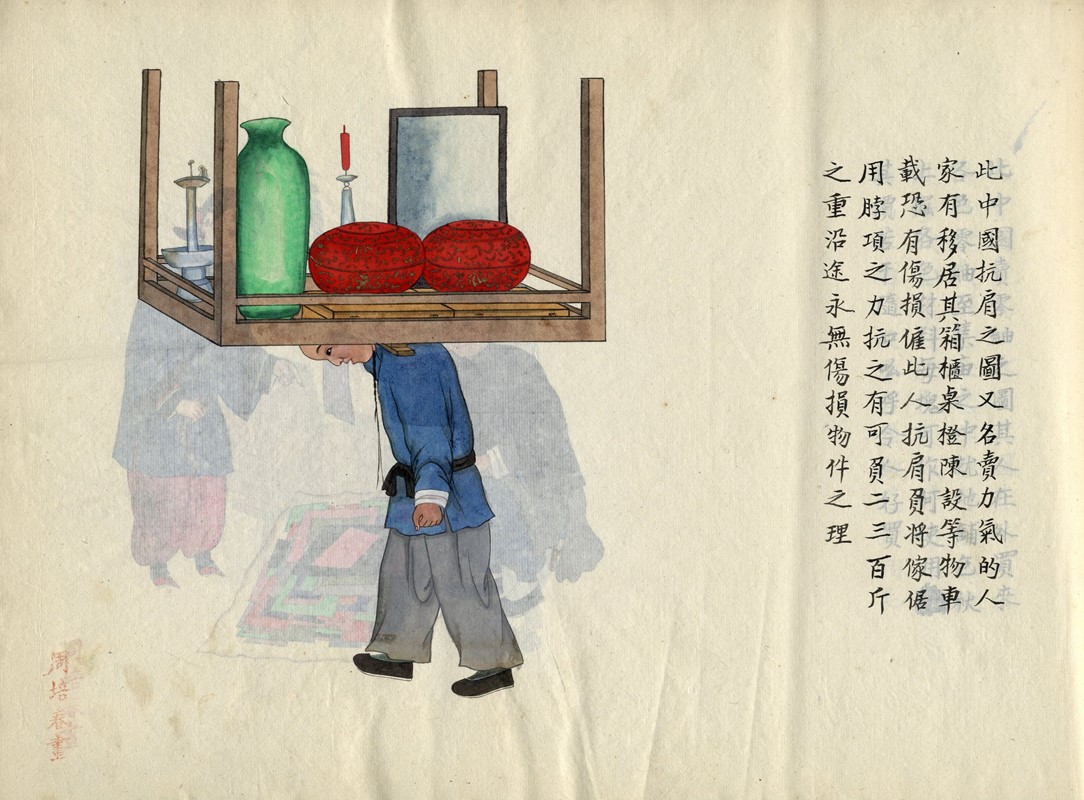 此中國抗肩之圖又名賣力氣的人
家有移居其箱櫃桌橙陳設等物車
載恐有傷損僱此人抗肩員將傢倨
用脖項之力抗之有可員二三百斤
之重沿途永無傷損物件之理
周培春畫